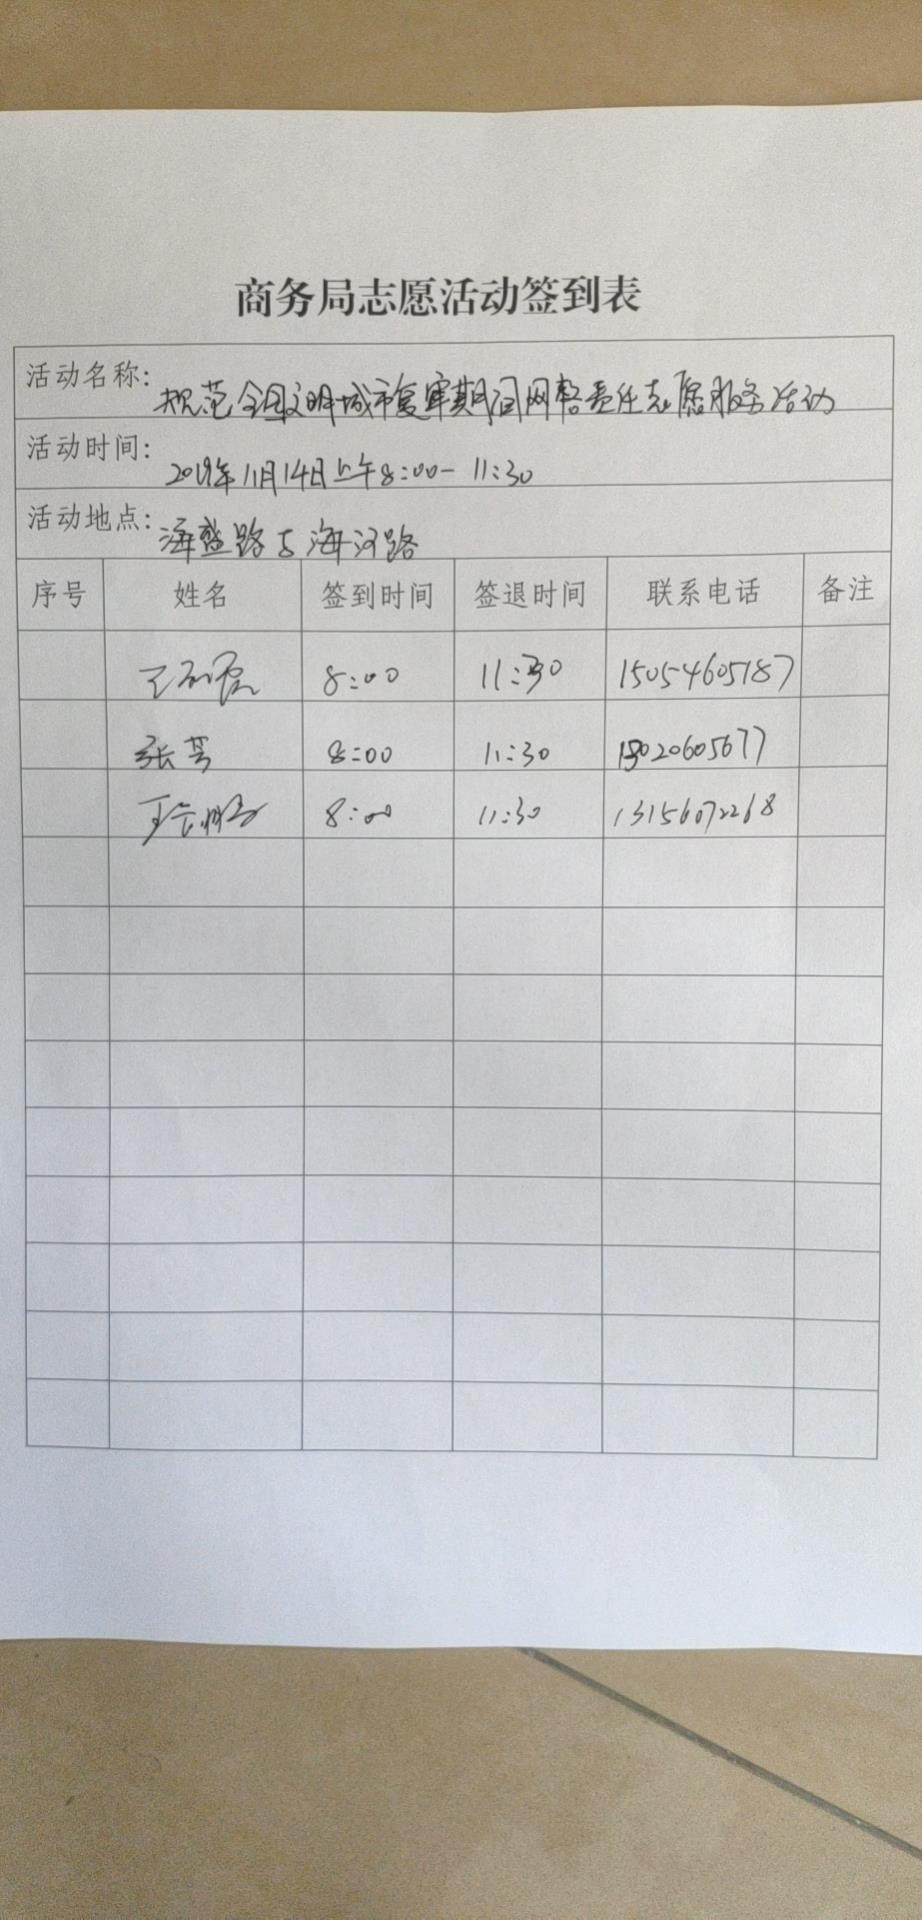 商务局志愿活动签到表
活动名称: 规范全国文明城市复审期间网格责任志愿服务活动
活动时间: 2019年11月14日上午8:00-11:30
活动地点: 海盛路与海河路
序号 姓名 签到时间 签退时间 联系电话 备注
8:00 11:30 15054605187
张芳 8:00 11:30 15020605677
8:00 11:30 13156072268